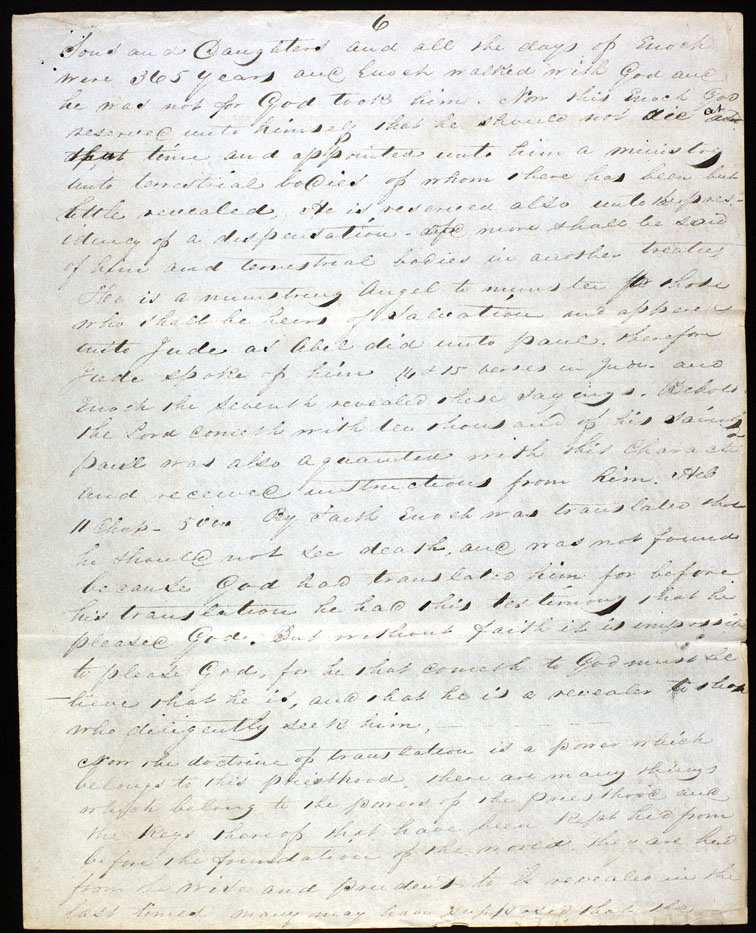 6
Sons and Daughters and all the days of Enoch
were 365 years and Enoch walked with God and
he was not for God took him. Now this Enoch God
reserved unto himself that he should not die at
that time and appointed unto him a ministry
unto terrestrial bodies of whom there has been but
little revealed. He is reserved also unto the pres-
idency of a dispensation more shall be said
of him and terrestrial bodies in another treaties
He is a ministring Angel to minister for those
who shall be heirs of Salvation and appered
unto Jude as Abel did unto paul. therefore
Jude spoke of him 14 & 15 verses in Jude and
Enoch the Seventh revealed these sayings. Behold
the Lord cometh with ten thousand of his Saints
paul was also aquainted with this Charact
and received instructions from him. Heb
11 Chap - 5 ver. By Faith Enoch was translated that
he should not see death, and was not found
because God had translated him for before
his translation he had this testimony that he
pleased God. But without faith it is impossi
to please God, for he that cometh to God must be
lieve that he is, and that he is a revealer to those
who diligently seek him.
Now the doctrine of translation is a power which
belongs to this priesthood, there are many things
which belong to the powers of the priesthood and
the keys thereof that have been kept hid from
before the foundation of the world they are hid
from the wise and prudent to be revealed in the
last times many may have supposed that the